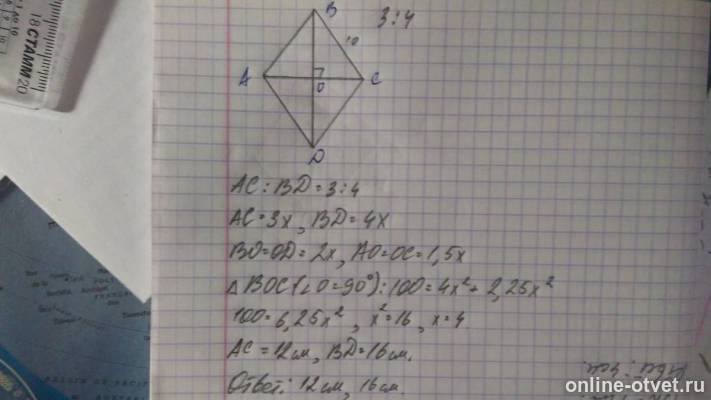 B
3:4
10
A
O
C
D
AC : BD = 3 : 4
AC = 3x , BD = 4x
BO=OD = 2x, AO=OC=1,5x
△BOC(∠O=90°): 100 = 4x² + 2,25x²
100 = 6,25x² , x²=16 , x=4
AC = 12см, BD=16см.
Ответ: 12см, 16см.
20
СТАММ
18
online-otvet.ru